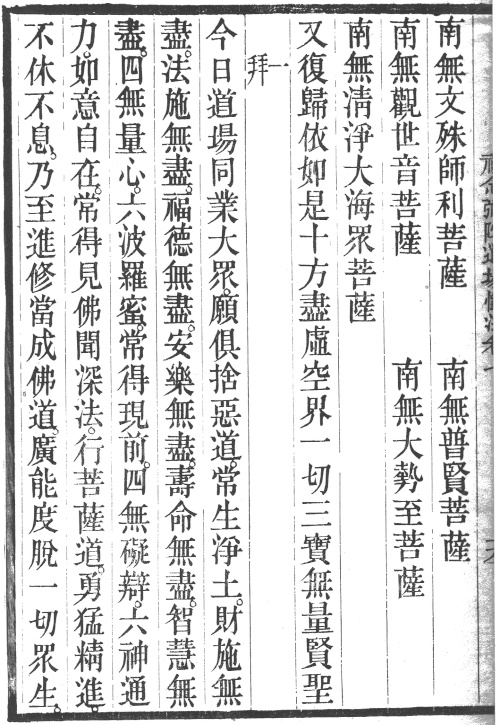 南無文殊師利菩薩　南無普賢菩薩
南無觀世音菩薩　南無大勢至菩薩
南無淸淨大海眾菩薩
又復歸依如是十方盡虛空界一切三寶無量賢聖
一拜
今日道場同業大眾。願俱捨惡道。常生淨土。財施無
盡。法施無盡。福德無盡。安樂無盡。壽命無盡。智慧無
盡。四無量心。六波羅蜜。常得現前。四無礙辯。六神通
力。如意自在。常得見佛聞深法。行菩薩道。勇猛精進。
不休不息。乃至進修當成佛道。廣能度脫一切眾生。